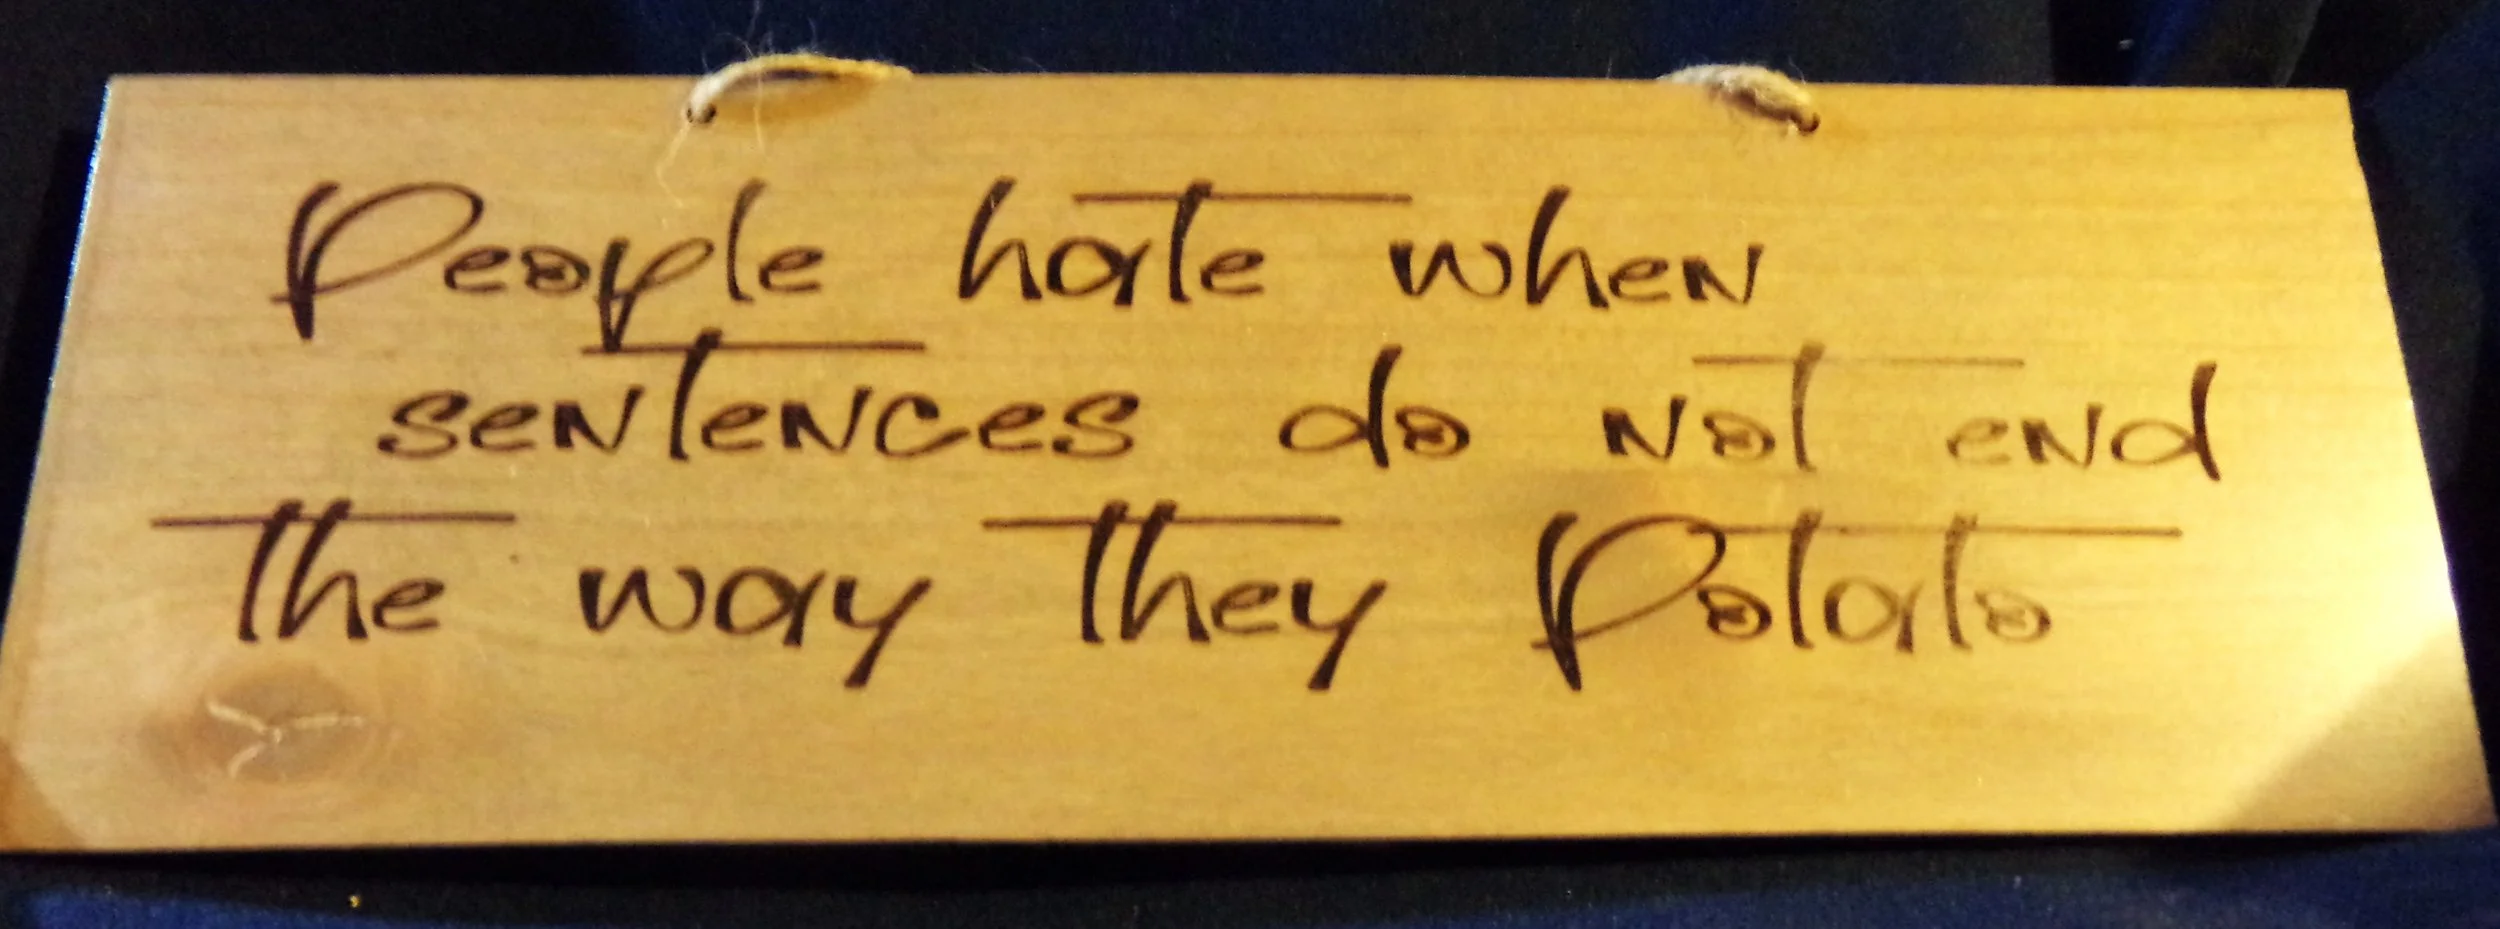 People hate when
sentences do not end
the way they Potato